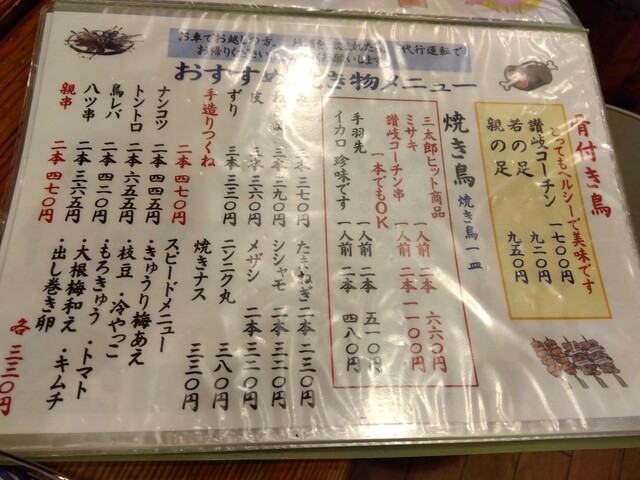 お車でお越しの方、
代行運転で
お帰りください
おすすめ焼き物メニュー
骨付き鳥
とってもヘルシーで美味です
讃岐コーチン 一七〇〇円
若の足 九二〇円
親の足 九五〇円
焼き鳥 焼き鳥一皿
三太郎ヒット商品
ミサキ 一人前 二本 六六〇円
讃岐コーチン串 一人前 二本 一一〇〇円
一本でもOK
手羽先 一人前 二本 五一〇円
イカロ 珍味です 一人前 二本 四八〇円
三本 三七〇円
三本 三九〇円
三本 三六〇円
ずり 三本 三三〇円
手造りつくね 二本 四七〇円
ナンコツ 二本 四四五円
トントロ 二本 六五五円
鳥レバ 二本 四二〇円
八ツ串 二本 三六五円
親串 二本 四七〇円
たまねぎ 二本 二三〇円
シシャモ 二本 三二〇円
メザシ 二本 三二〇円
ニンニク丸 三八〇円
焼きナス 三三〇円
スピードメニュー
・きゅうり梅あえ
・枝豆 ・冷やっこ
・もろきゅう ・トマト
・大根梅和え ・キムチ
・出し巻き卵
各 三三〇円